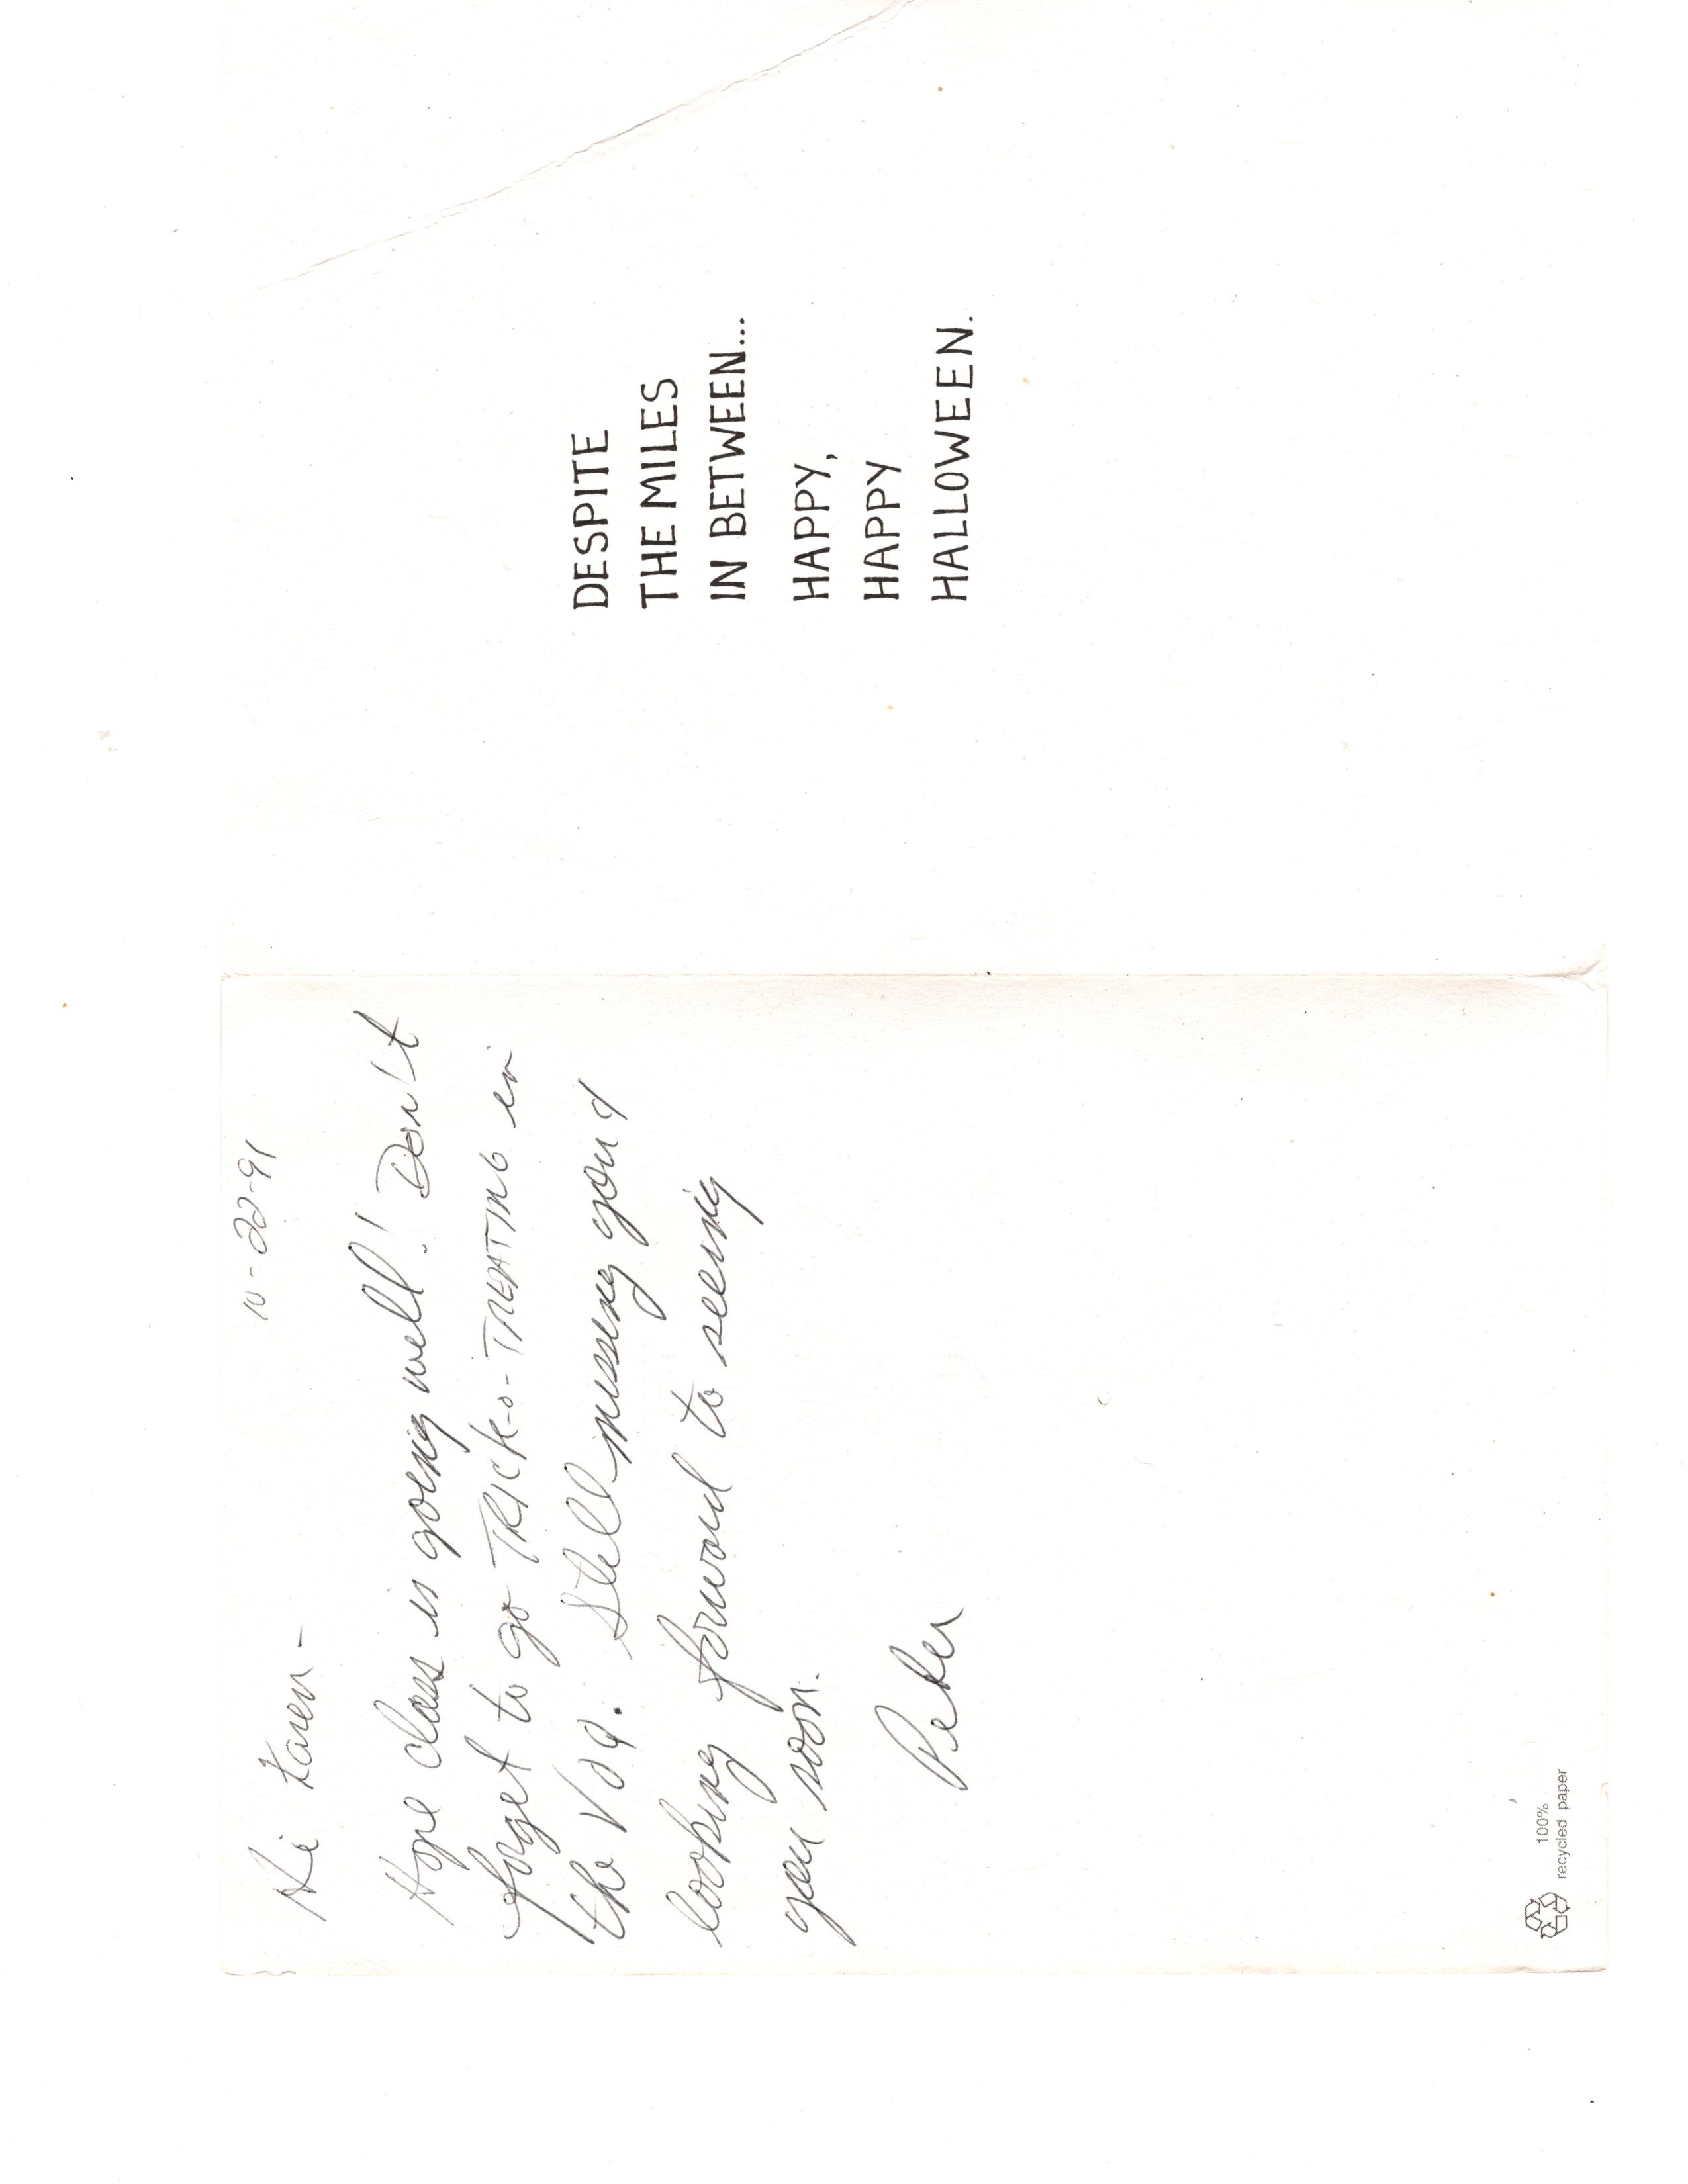 10-22-91
Hi Karen-
Hope class is going well! Don't
forget to go TRICK-o-TREATING in
the VOQ. Still missing you &
looking forward to seeing
you soon.
Peter
100%
recycled p paper
DESPITE
THE MILES
IN BETWEEN...
HAPPY,
HAPPY
HALLOWEEN.